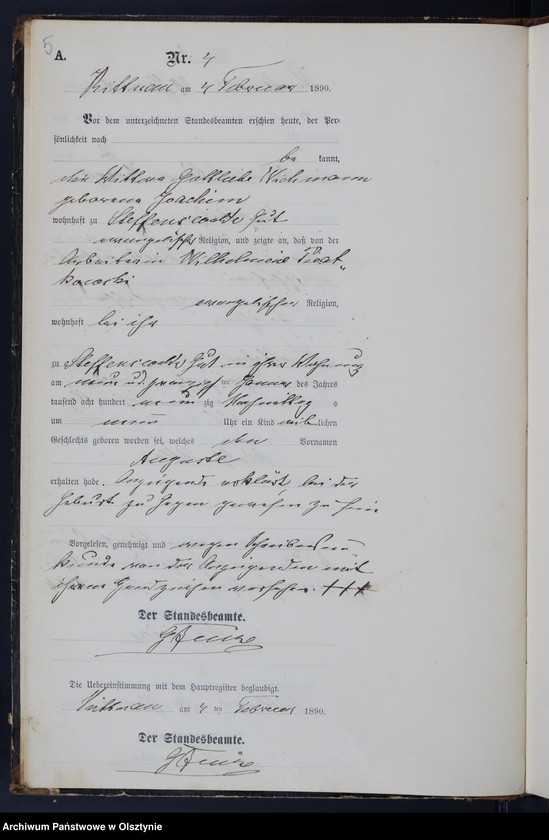 5
A.
Nr. 4
am 4 Februar 1890.
Vor dem unterzeichneten Standesbeamten erschien heute, der Per-
sönlichkeit nach
be kannt,
die Wittwe Gottliebe Wichmann
geborene Joachim
wohnhaft zu Steffenswalde Gut
evangelischer Religion, und zeigte an, daß von der
Arbeiterin Wilhelmine
evangelischer Religion,
wohnhaft bei ihr
zu Steffenswalde Gut in ihrer Wohnung
am neun und zwanzigsten Januar des Jahres
tausend acht hundert neun zig Nachmittag s
um neun Uhr ein Kind weib lichen
Geschlechts geboren worden sei, welches den Vornamen
Auguste
erhalten habe. Anzeigende erklärt, bei der
Geburt zugegen gewesen zu sein
Vorgelesen, genehmigt und wegen Schreibensun-
kunde von der Anzeigenden mit
ihrem Handzeichen versehen. +++
Der Standesbeamte.
Die Uebereinstimmung mit dem Hauptregister beglaubigt.
am 4 ten Februar 1890.
Der Standesbeamte.
Archiwum Państwowe w Olsztynie